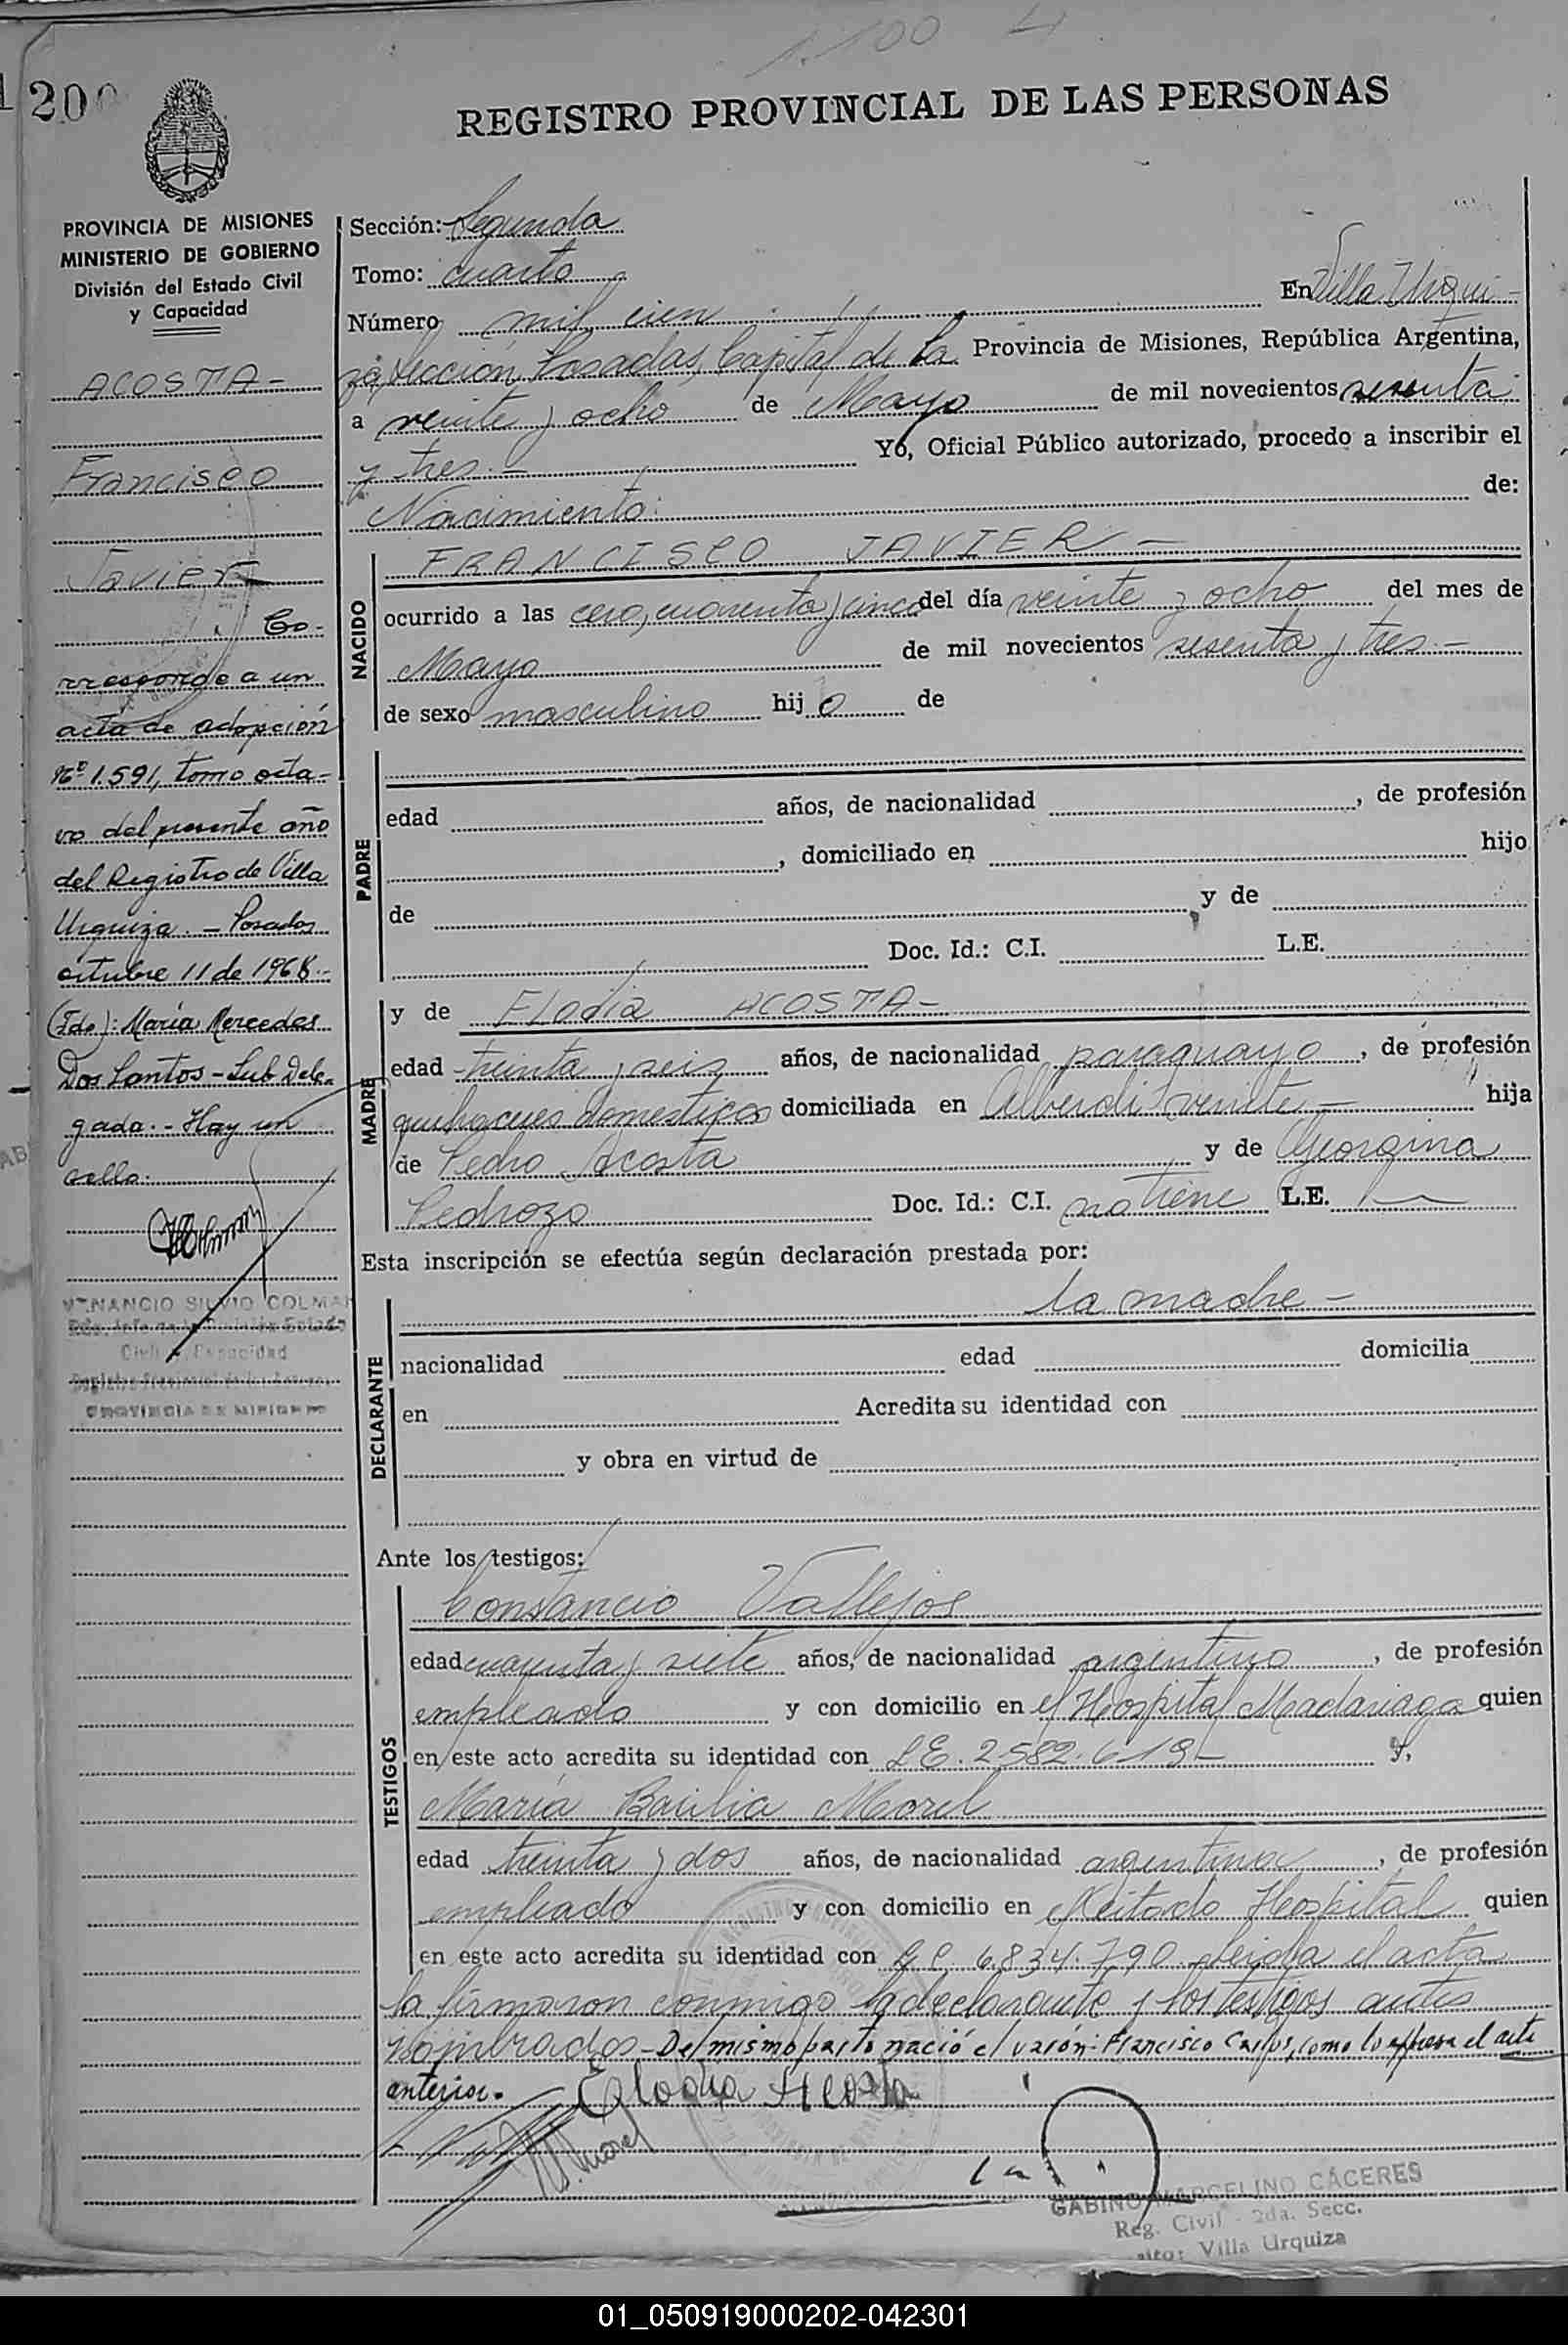 1.100
200
REGISTRO PROVINCIAL DE LAS PERSONAS
PROVINCIA DE MISIONES
MINISTERIO DE GOBIERNO
División del Estado Civil
y Capacidad
ACOSTA-
Francisco
Javier
Co-
rresponde a un
acta de adopción
Nº 1.591, tomo octa-
vo del presente año
del Registro de Villa
Urquiza. - Posadas
octubre 11 de 1968.-
(Fdo): María Mercedes
Dos Santos - Sub Dele-
gada. - Hay un
sello.
VENANCIO SILVIO COLMAN
Civil y Capacidad
PROVINCIA DE MISIONES
Sección: Segunda
Tomo: cuarto
Número mil cien En Villa Urqui-
za, Sección Posadas, Capital de la Provincia de Misiones, República Argentina,
a veinte y ocho de Mayo de mil novecientos sesenta
y tres.- Yo, Oficial Público autorizado, procedo a inscribir el
Nacimiento: de:
NACIDO
FRANCISCO JAVIER -
ocurrido a las cero, cuarenta y cinco del día veinte y ocho del mes de
Mayo de mil novecientos sesenta y tres.-
de sexo masculino hijo de
PADRE
edad años, de nacionalidad , de profesión
, domiciliado en hijo
de y de
Doc. Id.: C.I. L.E.
MADRE
y de Elodia ACOSTA-
edad treinta y seis años, de nacionalidad paraguaya, de profesión
quehaceres domesticos domiciliada en Alberdi veinte - hija
de Pedro Acosta y de Georgina
Pedrozo Doc. Id.: C.I. no tiene L.E. -
Esta inscripción se efectúa según declaración prestada por:
la madre -
DECLARANTE
nacionalidad edad domicilia
en Acredita su identidad con
y obra en virtud de
Ante los testigos:
TESTIGOS
Constancio Vallejos
edad cuarenta y siete años, de nacionalidad argentino, de profesión
empleado y con domicilio en el Hospital Madariaga quien
en este acto acredita su identidad con L.E. 2582.619- y,
María Basilia Morel
edad treinta y dos años, de nacionalidad argentina, de profesión
empleado y con domicilio en el citado Hospital quien
en este acto acredita su identidad con L.C. 6.834.790 leida el acta
la firmaron conmigo la declarante y los testigos antes
nombrados - Del mismo parto nació el varón: Francisco Carlos, como lo expresa el acta
anterior.
Elodia Acosta
GABINO MARCELINO CÁCERES
Reg. Civil - 2da. Secc.
Villa Urquiza
01_050919000202-042301